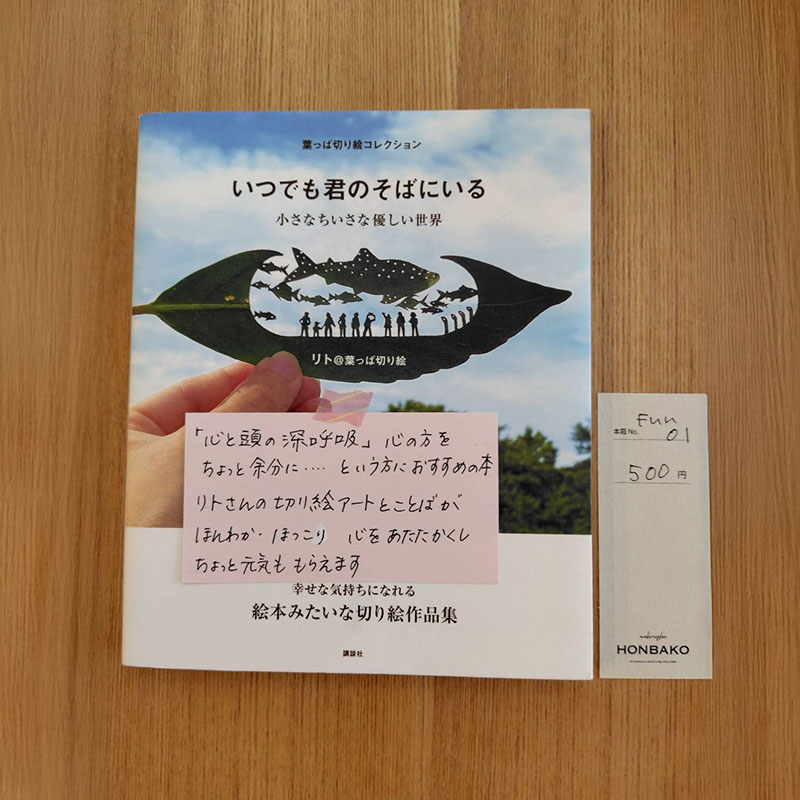 葉っぱ切り絵コレクション
いつでも君のそばにいる
小さなちいさな優しい世界
リト@葉っぱ切り絵
「心と頭の深呼吸」心の方を
ちょっと余分に‥‥ という方におすすめの本
リトさんの切り絵アートとことばが
ほんわか・ほっこり 心をあたたかくし
ちょっと元気も もらえます
幸せな気持ちになれる
絵本みたいな切り絵作品集
講談社
本箱 No. Fun 01
500円
HONBAKO